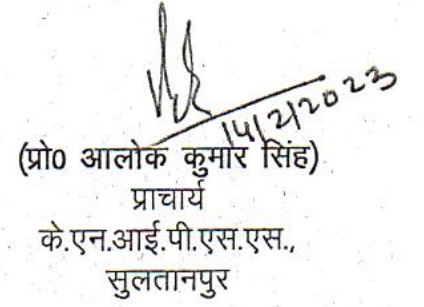 14/2/2023
(प्रो0 आलोक कुमार सिंह)
प्राचार्य
के.एन.आई.पी.एस.एस.,
सुलतानपुर